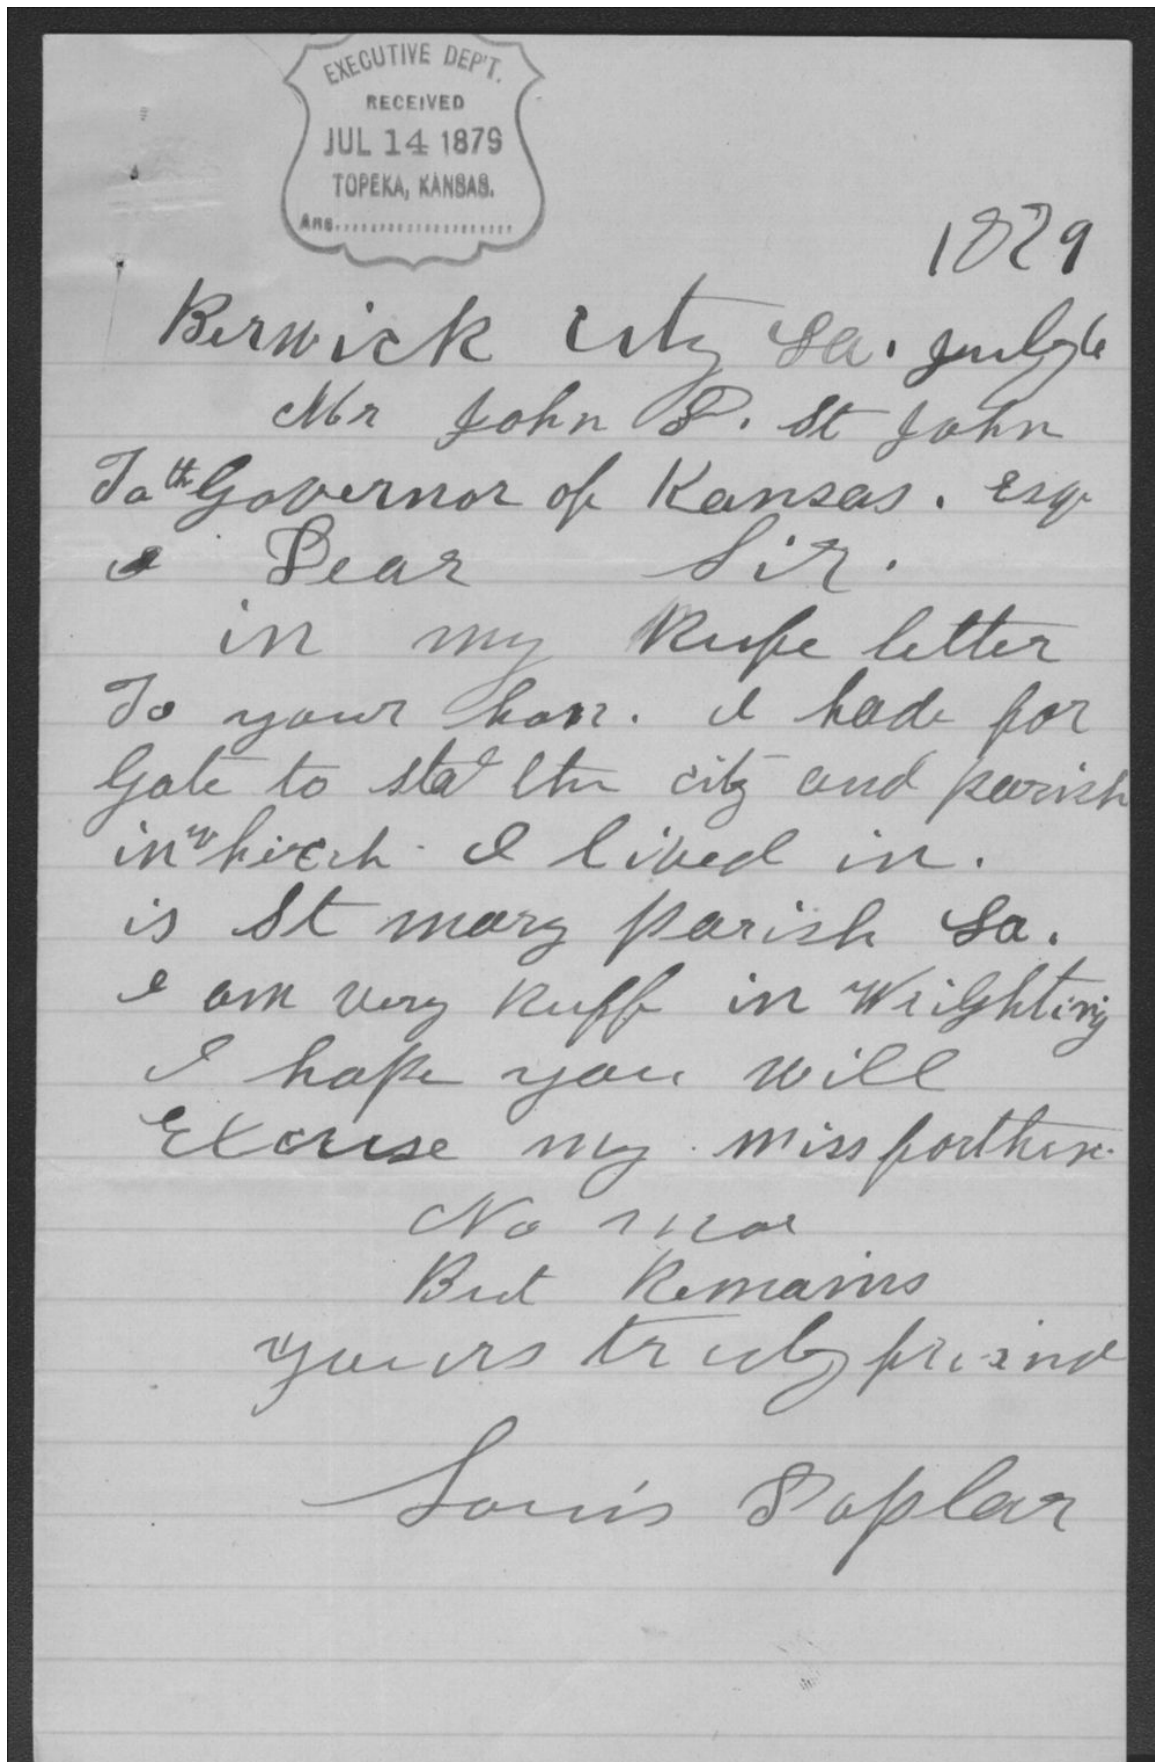 EXECUTIVE DEP'T.
RECEIVED
JUL 14 1879
TOPEKA, KANSAS.
Ans.
1879
Berwick City La. July 6
Mr John P. St John
To th Governor of Kansas. Esqr
Dear Sir.
in my Rufe letter
To your hon. I hade for
Gate to stat the city and parish
in whirch I lived in.
is St mary parish La.
I am very Ruff in Wrighting
I hope you will
Excuse my missforthen.
No mor
But Remains
yours truly friend
Louis Poplar